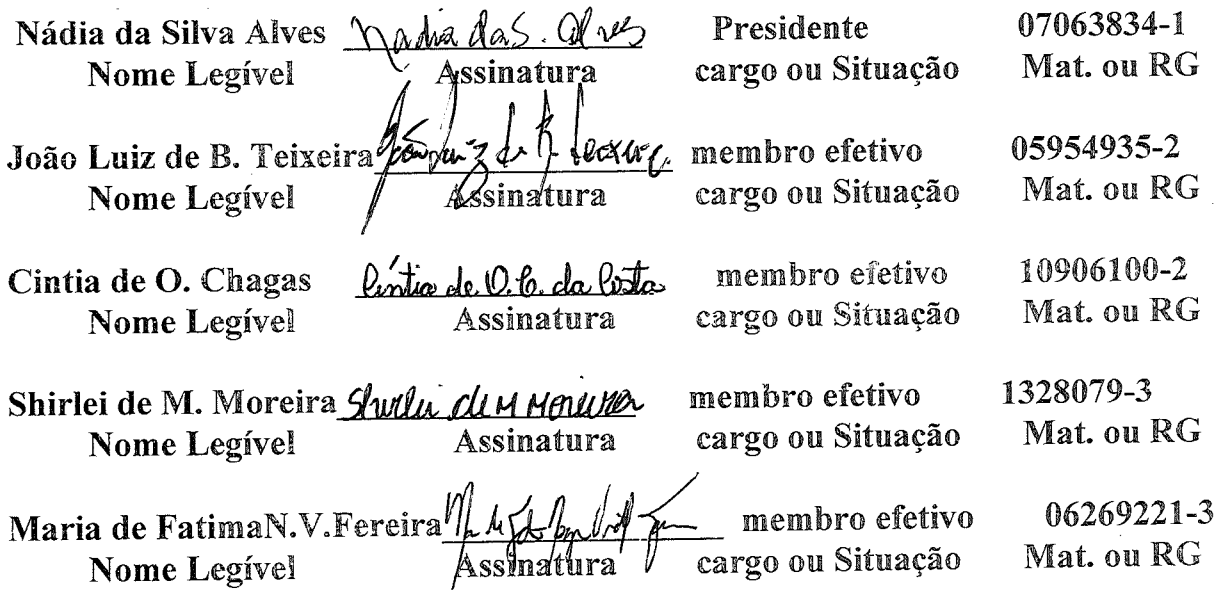 Nádia da Silva Alves Nadia da S. Alves Presidente 07063834-1
Nome Legível Assinatura cargo ou Situação Mat. ou RG
João Luiz de B. Teixeira João Luiz de B. Teixeira membro efetivo 05954935-2
Nome Legível Assinatura cargo ou Situação Mat. ou RG
Cintia de O. Chagas Cíntia de O. C. da Costa membro efetivo 10906100-2
Nome Legível Assinatura cargo ou Situação Mat. ou RG
Shirlei de M. Moreira Shirlei de M Moreira membro efetivo 1328079-3
Nome Legível Assinatura cargo ou Situação Mat. ou RG
Maria de FatimaN.V.Fereira membro efetivo 06269221-3
Nome Legível Assinatura cargo ou Situação Mat. ou RG